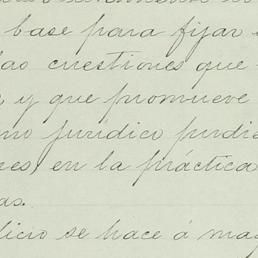 base para fijar
las cuestiones que
y que promueve
no jurídico purdi
res, en la práctica
as.
licio se hace á ma